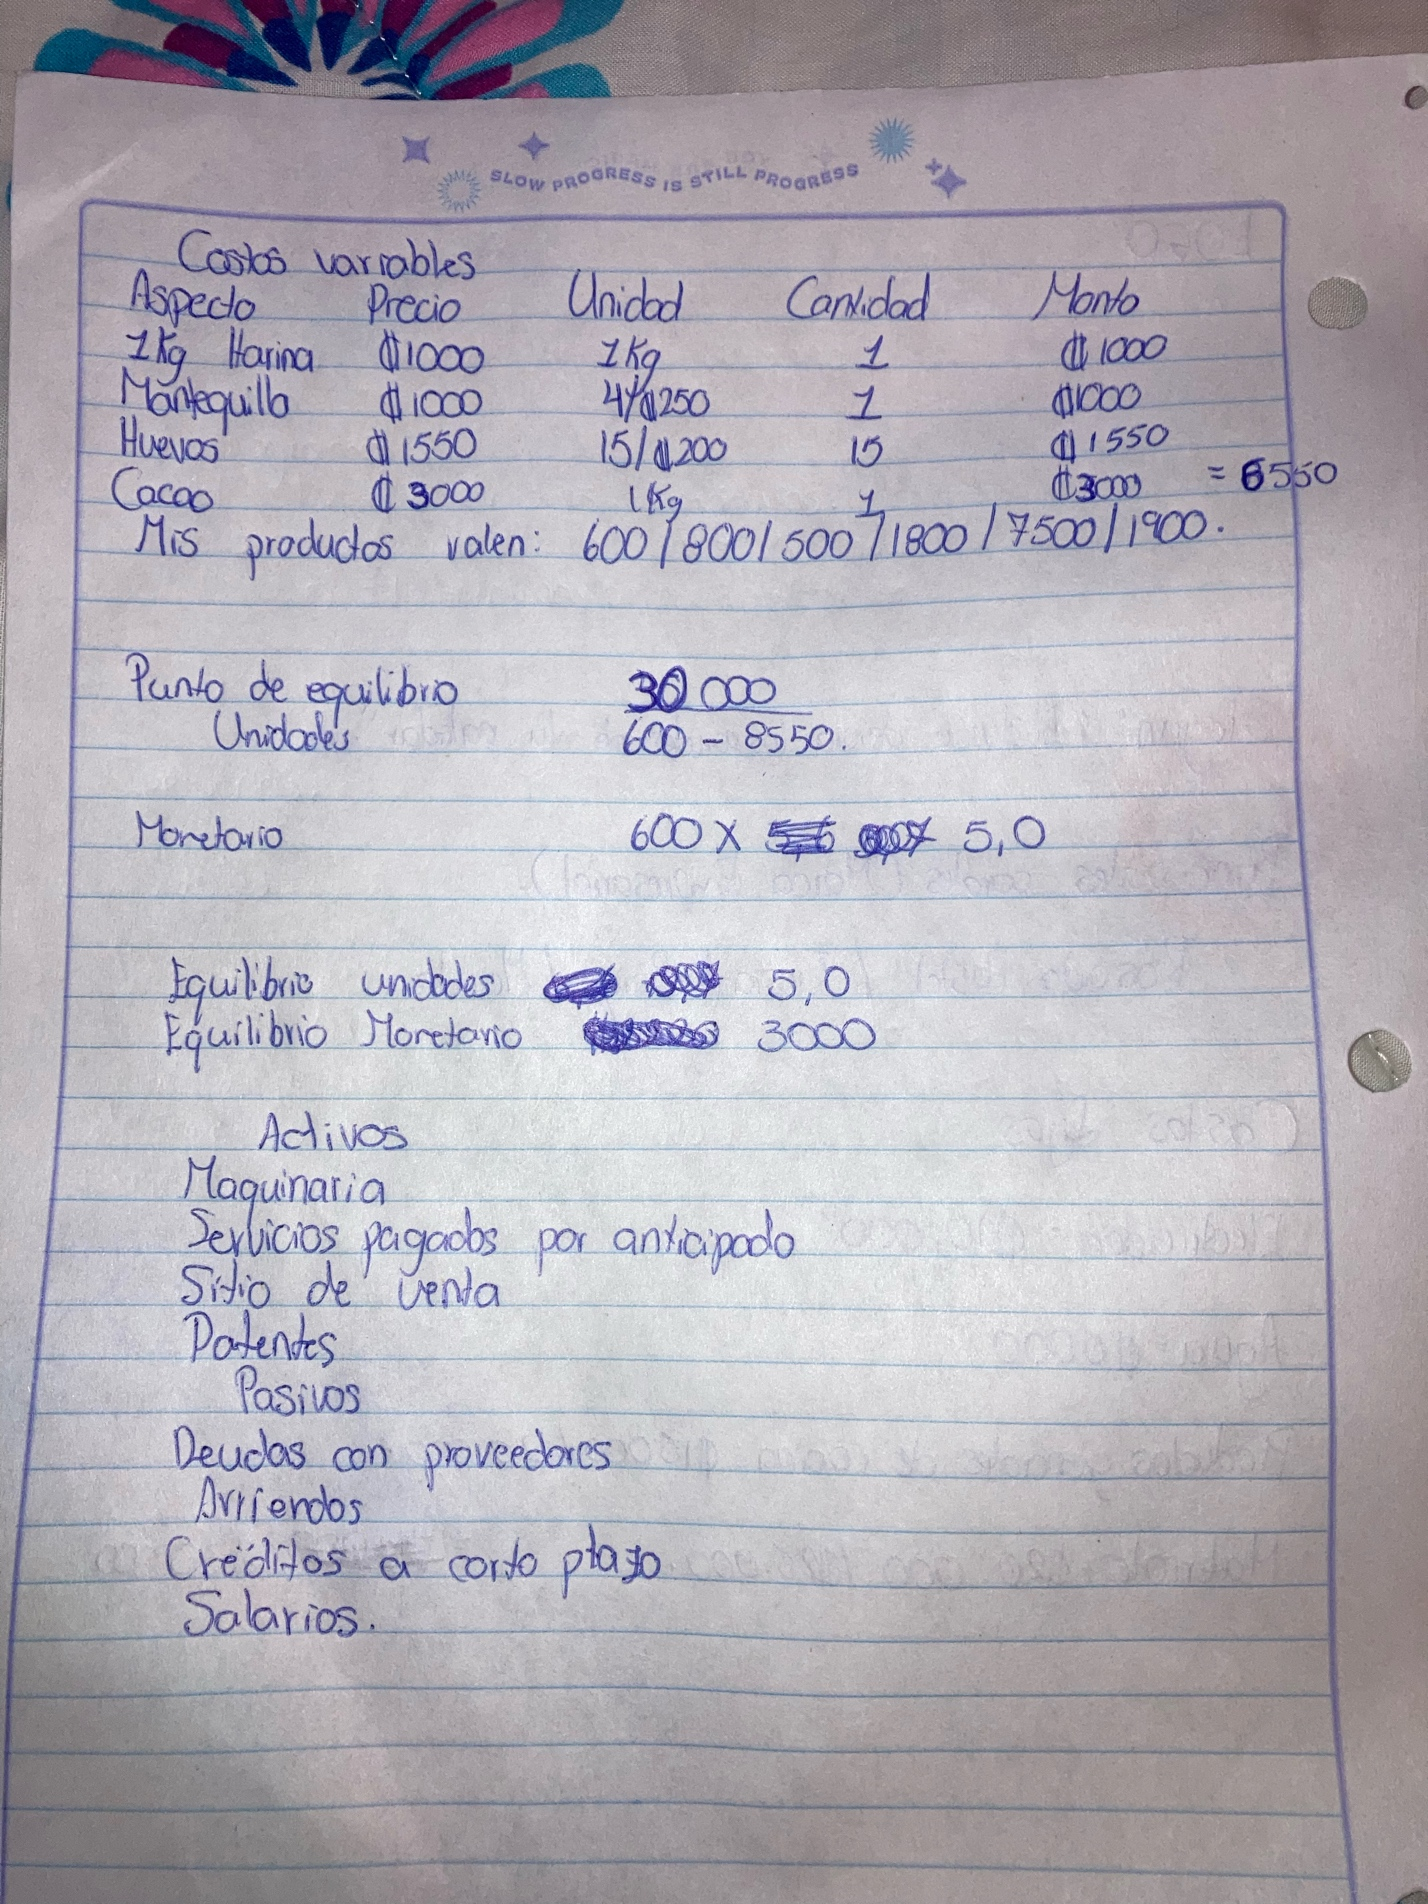 SLOW PROGRESS IS STILL PROGRESS
Costos variables
Aspecto Precio Unidad Cantidad Monto
1Kg Harina ₡1000 1Kg 1 ₡1000
Mantequilla ₡1000 4/₡250 1 ₡1000
Huevos ₡1550 15/₡200 15 ₡1550
Cacao ₡3000 1Kg 1 ₡3000 = 6550
Mis productos valen: 600/800/500/1800/7500/1900.
Punto de equilibrio 30 000
Unidades 600 - 8550.
Monetario 600 X 5,0
Equilibrio unidades 5,0
Equilibrio Monetario 3000
Activos
Maquinaria
Servicios pagados por anticipado
Sitio de venta
Patentes
Pasivos
Deudas con proveedores
Arriendos
Créditos a corto plazo
Salarios.